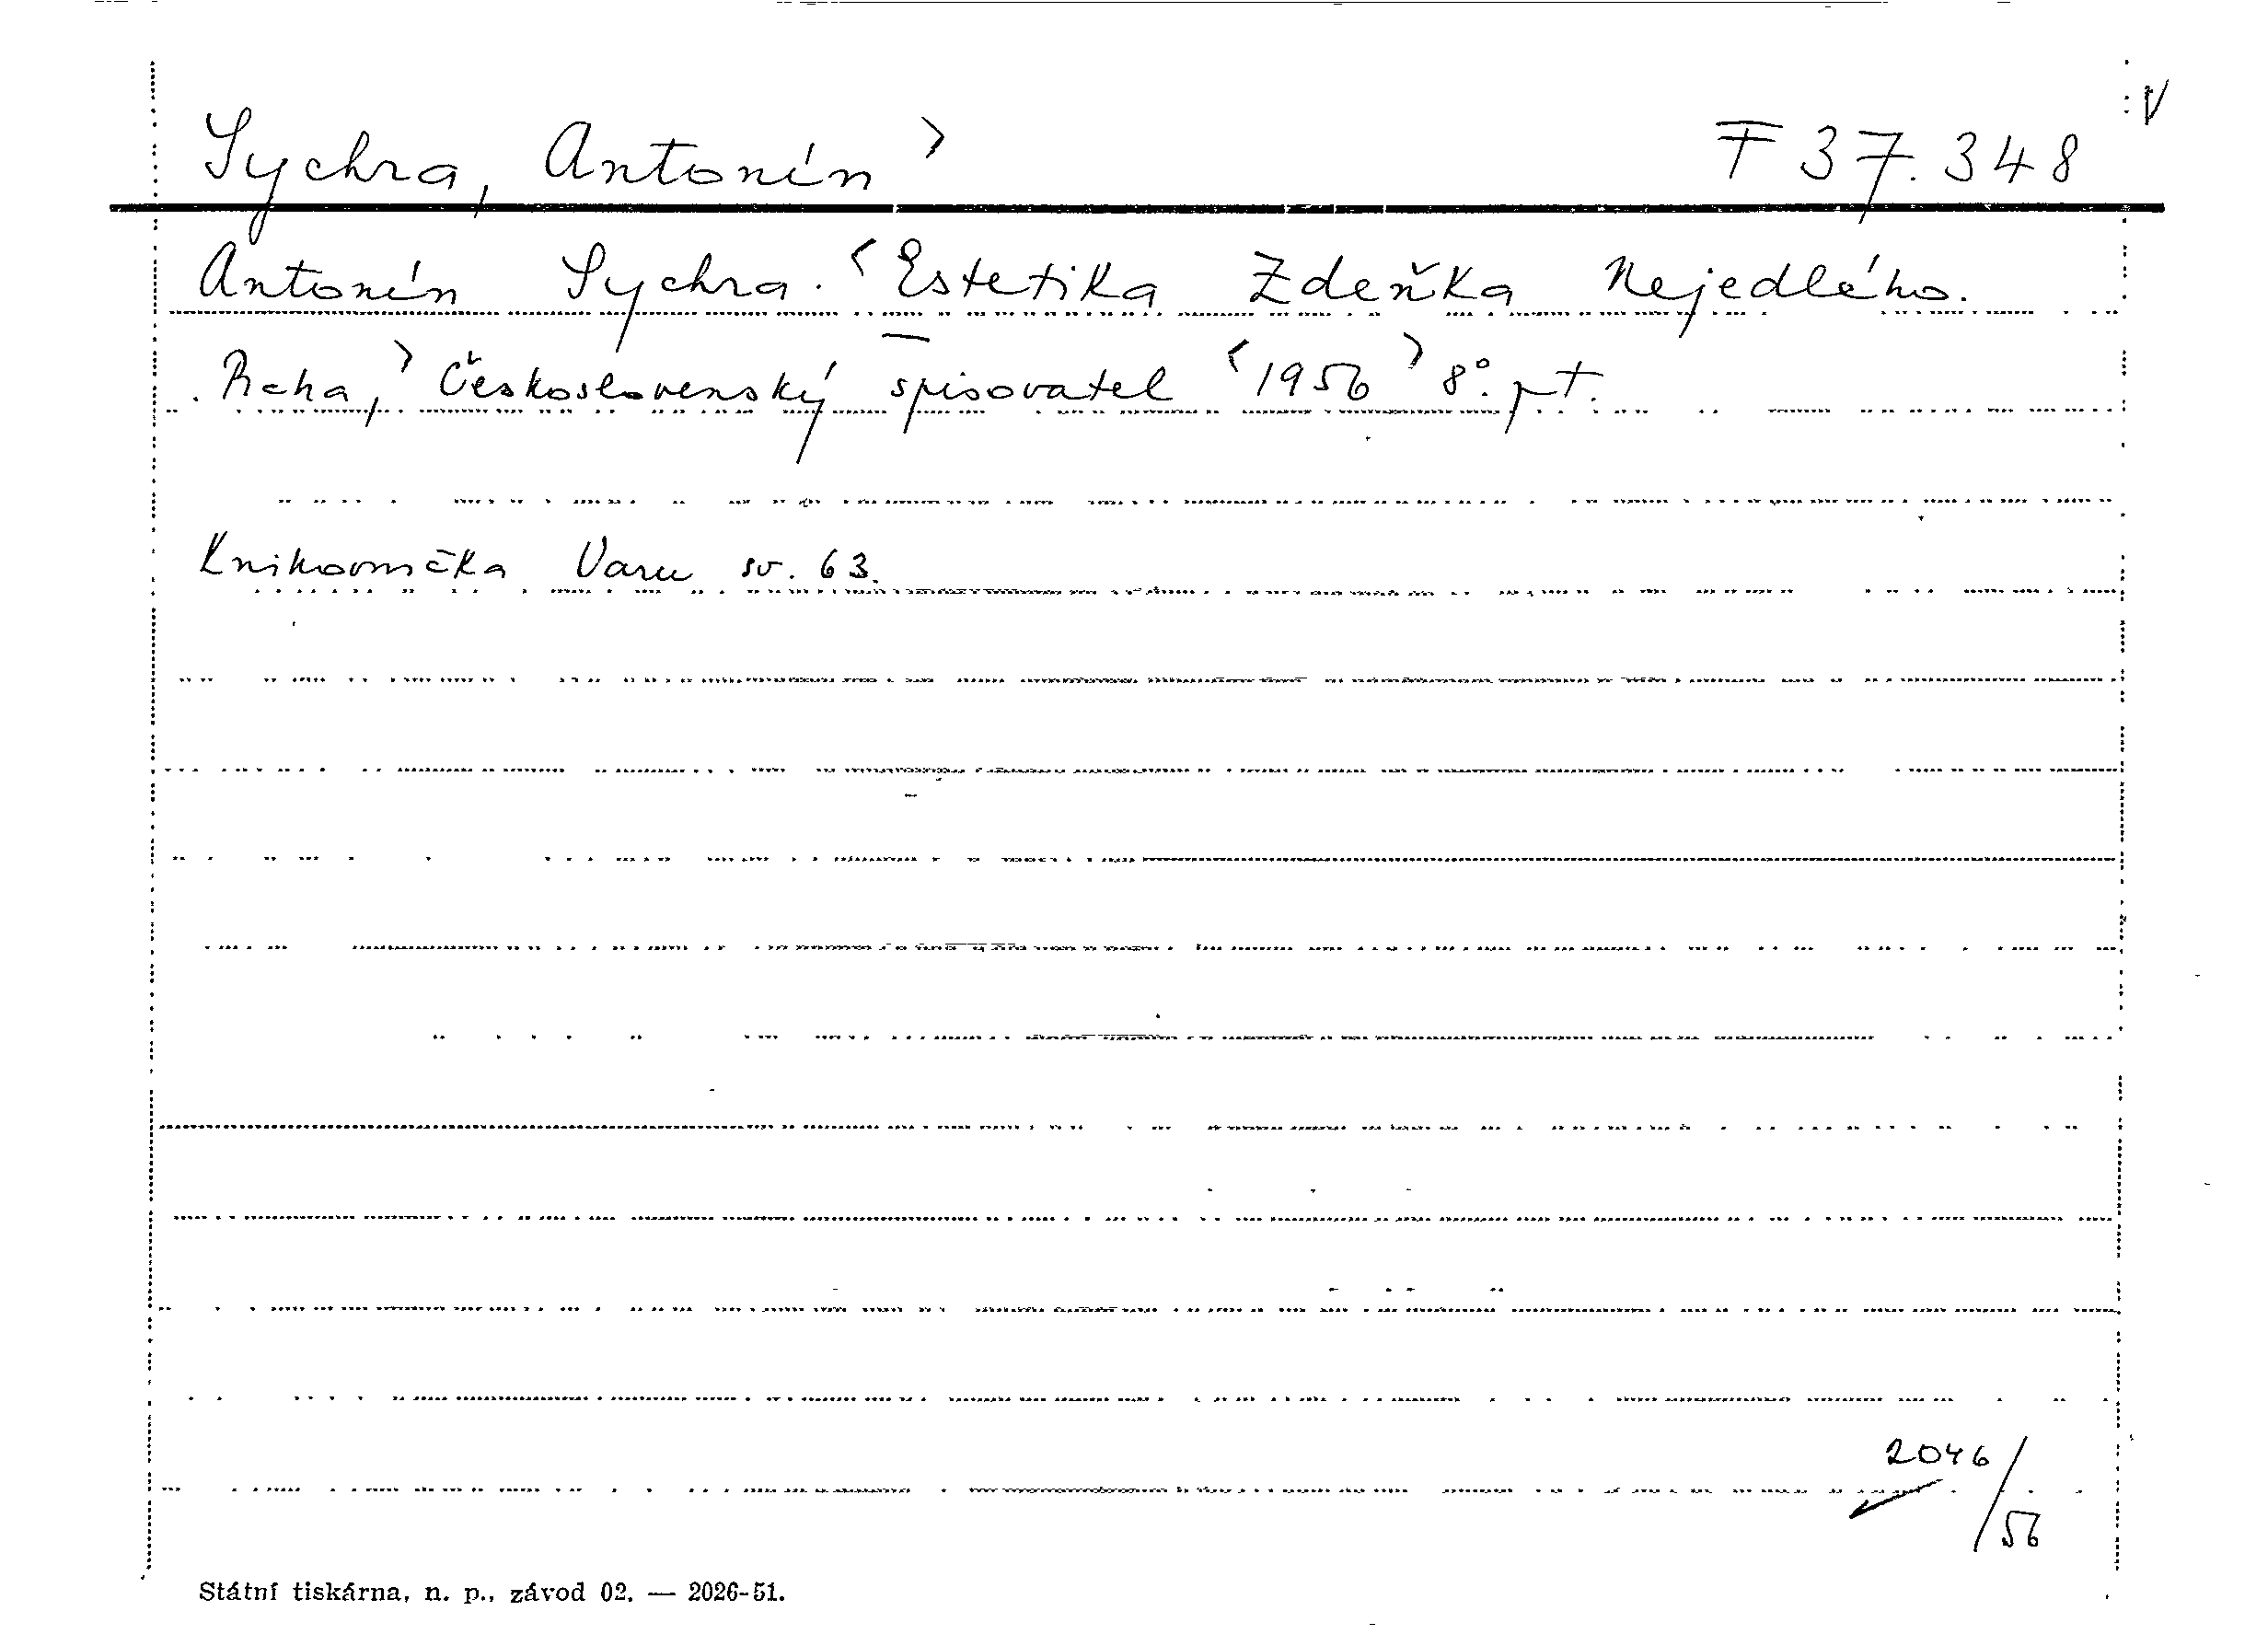 V
Sychra, Antonín > F 37.348
Antonín Sychra. <Estetika Zdeňka Nejedlého.
Praha,> Československý spisovatel <1956> 8°. pt.
Knihovnička Varu sv. 63.
2046/56
Státní tiskárna, n. p., závod 02. — 2026-51.